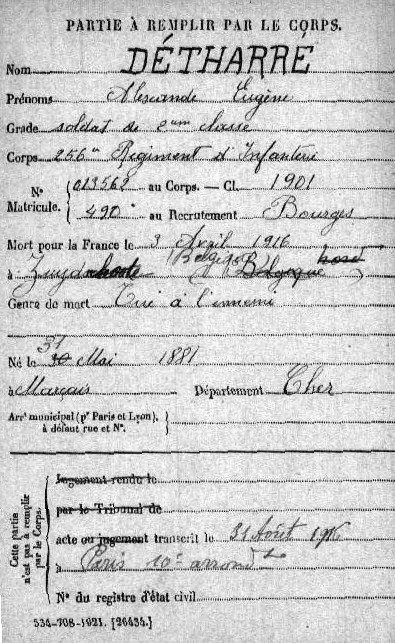 PARTIE À REMPLIR PAR LE CORPS.
Nom DÉTHARRÉ
Prénoms Alexandre Eugène
Grade soldat de 2eme classe
Corps 256e Régiment d'Infanterie
N° Matricule. { 013562 au Corps. — Cl. 1901
490 au Recrutement Bourges
Mort pour la France le 3 Avril 1916
à Zuydschoote (Belgique) Belgique
Genre de mort Tué à l'ennemi
Né le 31 Mai 1881
à Marçais Département Cher
Arrt municipal (pr Paris et Lyon), à défaut rue et N°. }
Cette partie n'est pas à remplir par le Corps.
Jugement rendu le
par le Tribunal de
acte ou jugement transcrit le 31 Août 1916
à Paris 10e arrondt
N° du registre d'état civil
534-708-1921. [26434.]